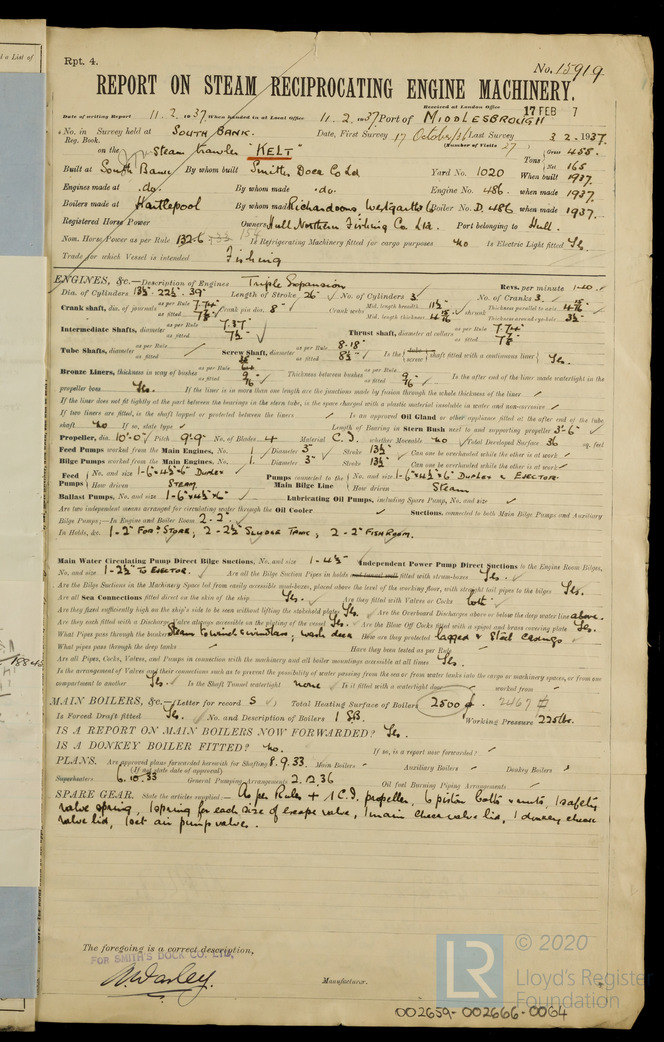 d a List of
Rpt. 4.
No. 15919
REPORT ON STEAM RECIPROCATING ENGINE MACHINERY.
Received at London Office 17 FEB 7
Date of writing Report 11.2.1937. When handed in at Local Office 11.2.1937 Port of MIDDLESBROUGH
No. in Survey held at SOUTH BANK. Date, First Survey 17 October/36 Last Survey 3 2 1937.
Reg. Book. (Number of Visits 27)
on the Steam trawler "KELT" Tons Gross 455. Net 165
Built at South Bank By whom built Smith's Dock Co Ld Yard No. 1020 When built 1937.
Engines made at .do. By whom made .do. Engine No. 486. when made 1937.
Boilers made at Hartlepool By whom made Richardsons, Westgarth & Co Boiler No. D. 486 when made 1937.
Registered Horse Power Owners Hull Northern Fishing Co. Ltd. Port belonging to Hull.
Nom. Horse Power as per Rule 132.6 Is Refrigerating Machinery fitted for cargo purposes no Is Electric Light fitted Yes.
Trade for which Vessel is intended Fishing
ENGINES, &c.—Description of Engines Triple Expansion Revs. per minute 110.
Dia. of Cylinders 13½". 22½". 39" Length of Stroke 26" No. of Cylinders 3 No. of Cranks 3.
Crank shaft, dia. of journals as per Rule 7.74" as fitted 7⅞" Crank pin dia. 8" Crank webs Mid. length breadth Mid. length thickness shrunk Thickness parallel to axis Thickness around eye-hole
Intermediate Shafts, diameter as per Rule 7.37" as fitted 7½" Thrust shaft, diameter at collars as per Rule 7.74" as fitted 7⅞"
Tube Shafts, diameter as per Rule as fitted Screw Shaft, diameter as per Rule 8.18" as fitted 8½" Is the screw shaft fitted with a continuous liner Yes.
Bronze Liners, thickness in way of bushes as per Rule as fitted 9/16" Thickness between bushes as per Rule as fitted 9/16" Is the after end of the liner made watertight in the
propeller boss Yes. If the liner is in more than one length are the junctions made by fusion through the whole thickness of the liner
If the liner does not fit tightly at the part between the bearings in the stern tube, is the space charged with a plastic material insoluble in water and non-corrosive
If two liners are fitted, is the shaft lapped or protected between the liners Is an approved Oil Gland or other appliance fitted at the after end of the tube
shaft no If so, state type Length of Bearing in Stern Bush next to and supporting propeller 3'-6"
Propeller, dia. 10'-0" Pitch 9'-9" No. of Blades 4 Material C.I. whether Moveable no Total Developed Surface 36 sq. feet
Feed Pumps worked from the Main Engines, No. 1 Diameter 3" Stroke 13½" Can one be overhauled while the other is at work
Bilge Pumps worked from the Main Engines, No. 1. Diameter 3" Stroke 13½" Can one be overhauled while the other is at work
Feed Pumps No. and size 1-6"×4½"×6" Duplex Pumps connected to the Main Bilge Line No. and size 1-6"×4½"×6" Duplex & EJECTOR.
How driven STEAM How driven Steam
Ballast Pumps, No. and size 1-6"×4½"×6" Lubricating Oil Pumps, including Spare Pump, No. and size
Are two independent means arranged for circulating water through the Oil Cooler Suctions, connected to both Main Bilge Pumps and Auxiliary
Bilge Pumps;—In Engine and Boiler Room 2-2".
In Holds, &c. 1-2" FOR'D STORE, 2-2½" SLUDGE TANK, 2-2" FISH ROOM.
Main Water Circulating Pump Direct Bilge Suctions, No. and size 1-4½" Independent Power Pump Direct Suctions to the Engine Room Bilges,
No. and size 1-2½" TO EJECTOR. Are all the Bilge Suction Pipes in holds and tunnel well fitted with strum-boxes Yes.
Are the Bilge Suctions in the Machinery Space led from easily accessible mud-boxes, placed above the level of the working floor, with straight tail pipes to the bilges Yes.
Are all Sea Connections fitted direct on the skin of the ship Yes. Are they fitted with Valves or Cocks both
Are they fixed sufficiently high on the ship's side to be seen without lifting the stokehold plates Yes. Are the Overboard Discharges above or below the deep water line above.
Are they each fitted with a Discharge Valve always accessible on the plating of the vessel Yes. Are the Blow Off Cocks fitted with a spigot and brass covering plate Yes.
What Pipes pass through the bunkers Steam to winch & windlass, wash deck How are they protected lagged & steel casings
What pipes pass through the deep tanks Have they been tested as per Rule
Are all Pipes, Cocks, Valves, and Pumps in connection with the machinery and all boiler mountings accessible at all times Yes.
Is the arrangement of Valves and their connections such as to prevent the possibility of water passing from the sea or from water tanks into the cargo or machinery spaces, or from one
compartment to another Yes. Is the Shaft Tunnel watertight none Is it fitted with a watertight door worked from
MAIN BOILERS, &c.—(Letter for record S) Total Heating Surface of Boilers 2500 2467
Is Forced Draft fitted Yes. No. and Description of Boilers 1 S.B. Working Pressure 225 lbs.
IS A REPORT ON MAIN BOILERS NOW FORWARDED? Yes.
IS A DONKEY BOILER FITTED? no. If so, is a report now forwarded?
PLANS. Are approved plans forwarded herewith for Shafting 8.9.33. Main Boilers Auxiliary Boilers Donkey Boilers
(If not state date of approval)
Superheaters 6.10.33 General Pumping Arrangements 2.12.36 Oil fuel Burning Piping Arrangements
SPARE GEAR. State the articles supplied:— As per Rules + 1 C.I. propeller, 6 piston bolts & nuts, 1 safety
valve spring, 1 spring for each size of escape valve, 1 main check valve lid, 1 donkey check
valve lid, 1 set air pump valves.
The foregoing is a correct description,
FOR SMITH'S DOCK CO. LTD,
Manufacturer.
LR © 2020
Lloyd's Register
Foundation
002659-002666-0064